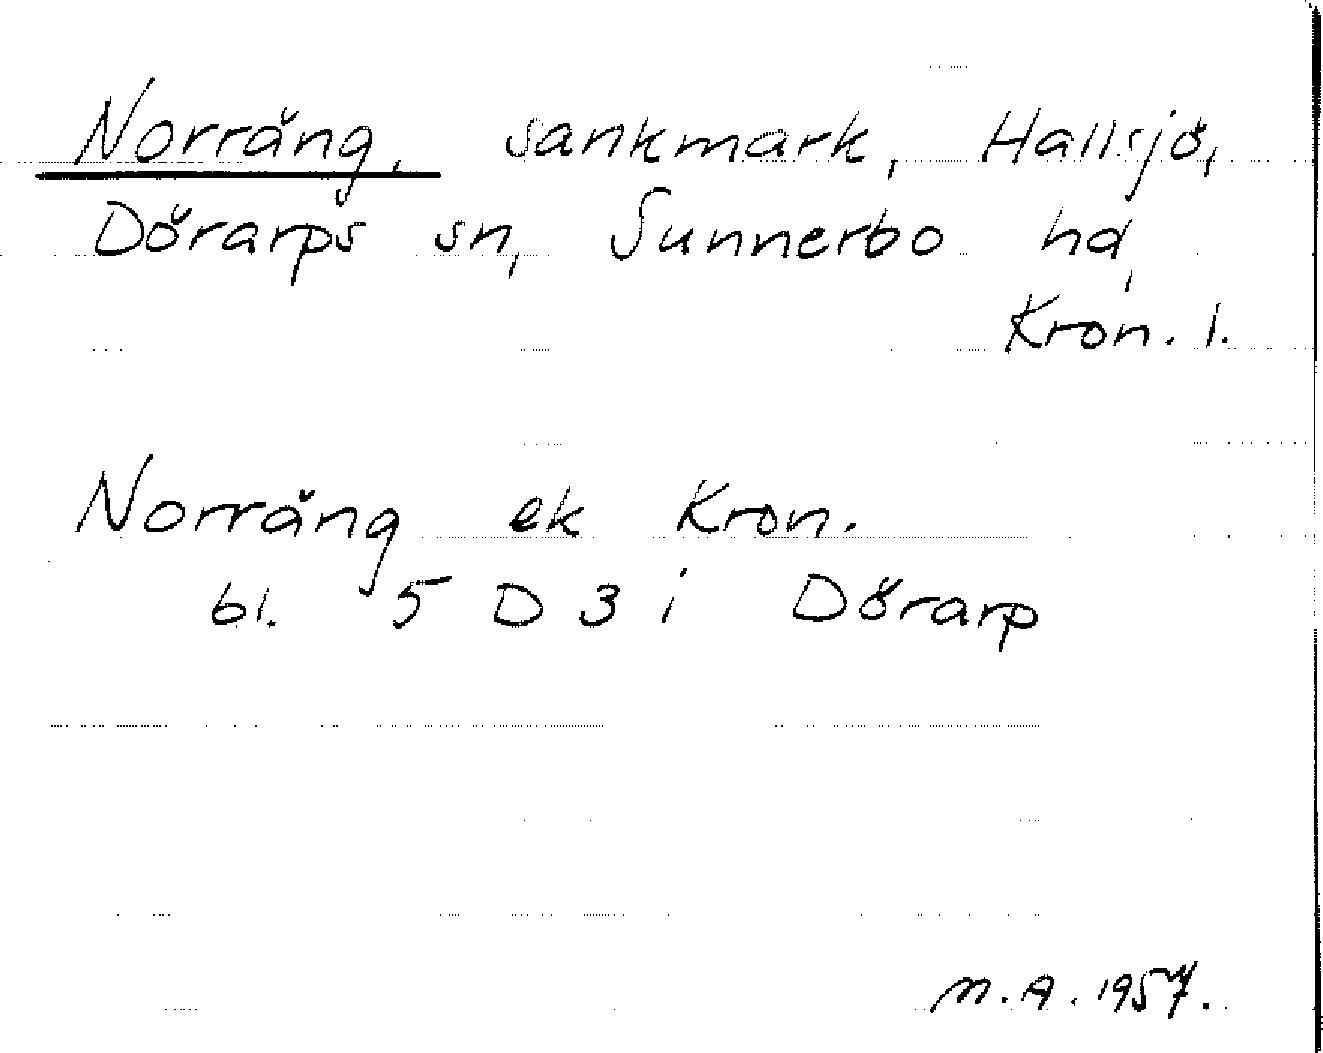 Norräng, sankmark, Hallsjö,
Dörarps sn, Sunnerbo hd,
Kron. l.
Norräng ek Kron.
bl. 5 D 3 i Dörarp
M.A. 1957.